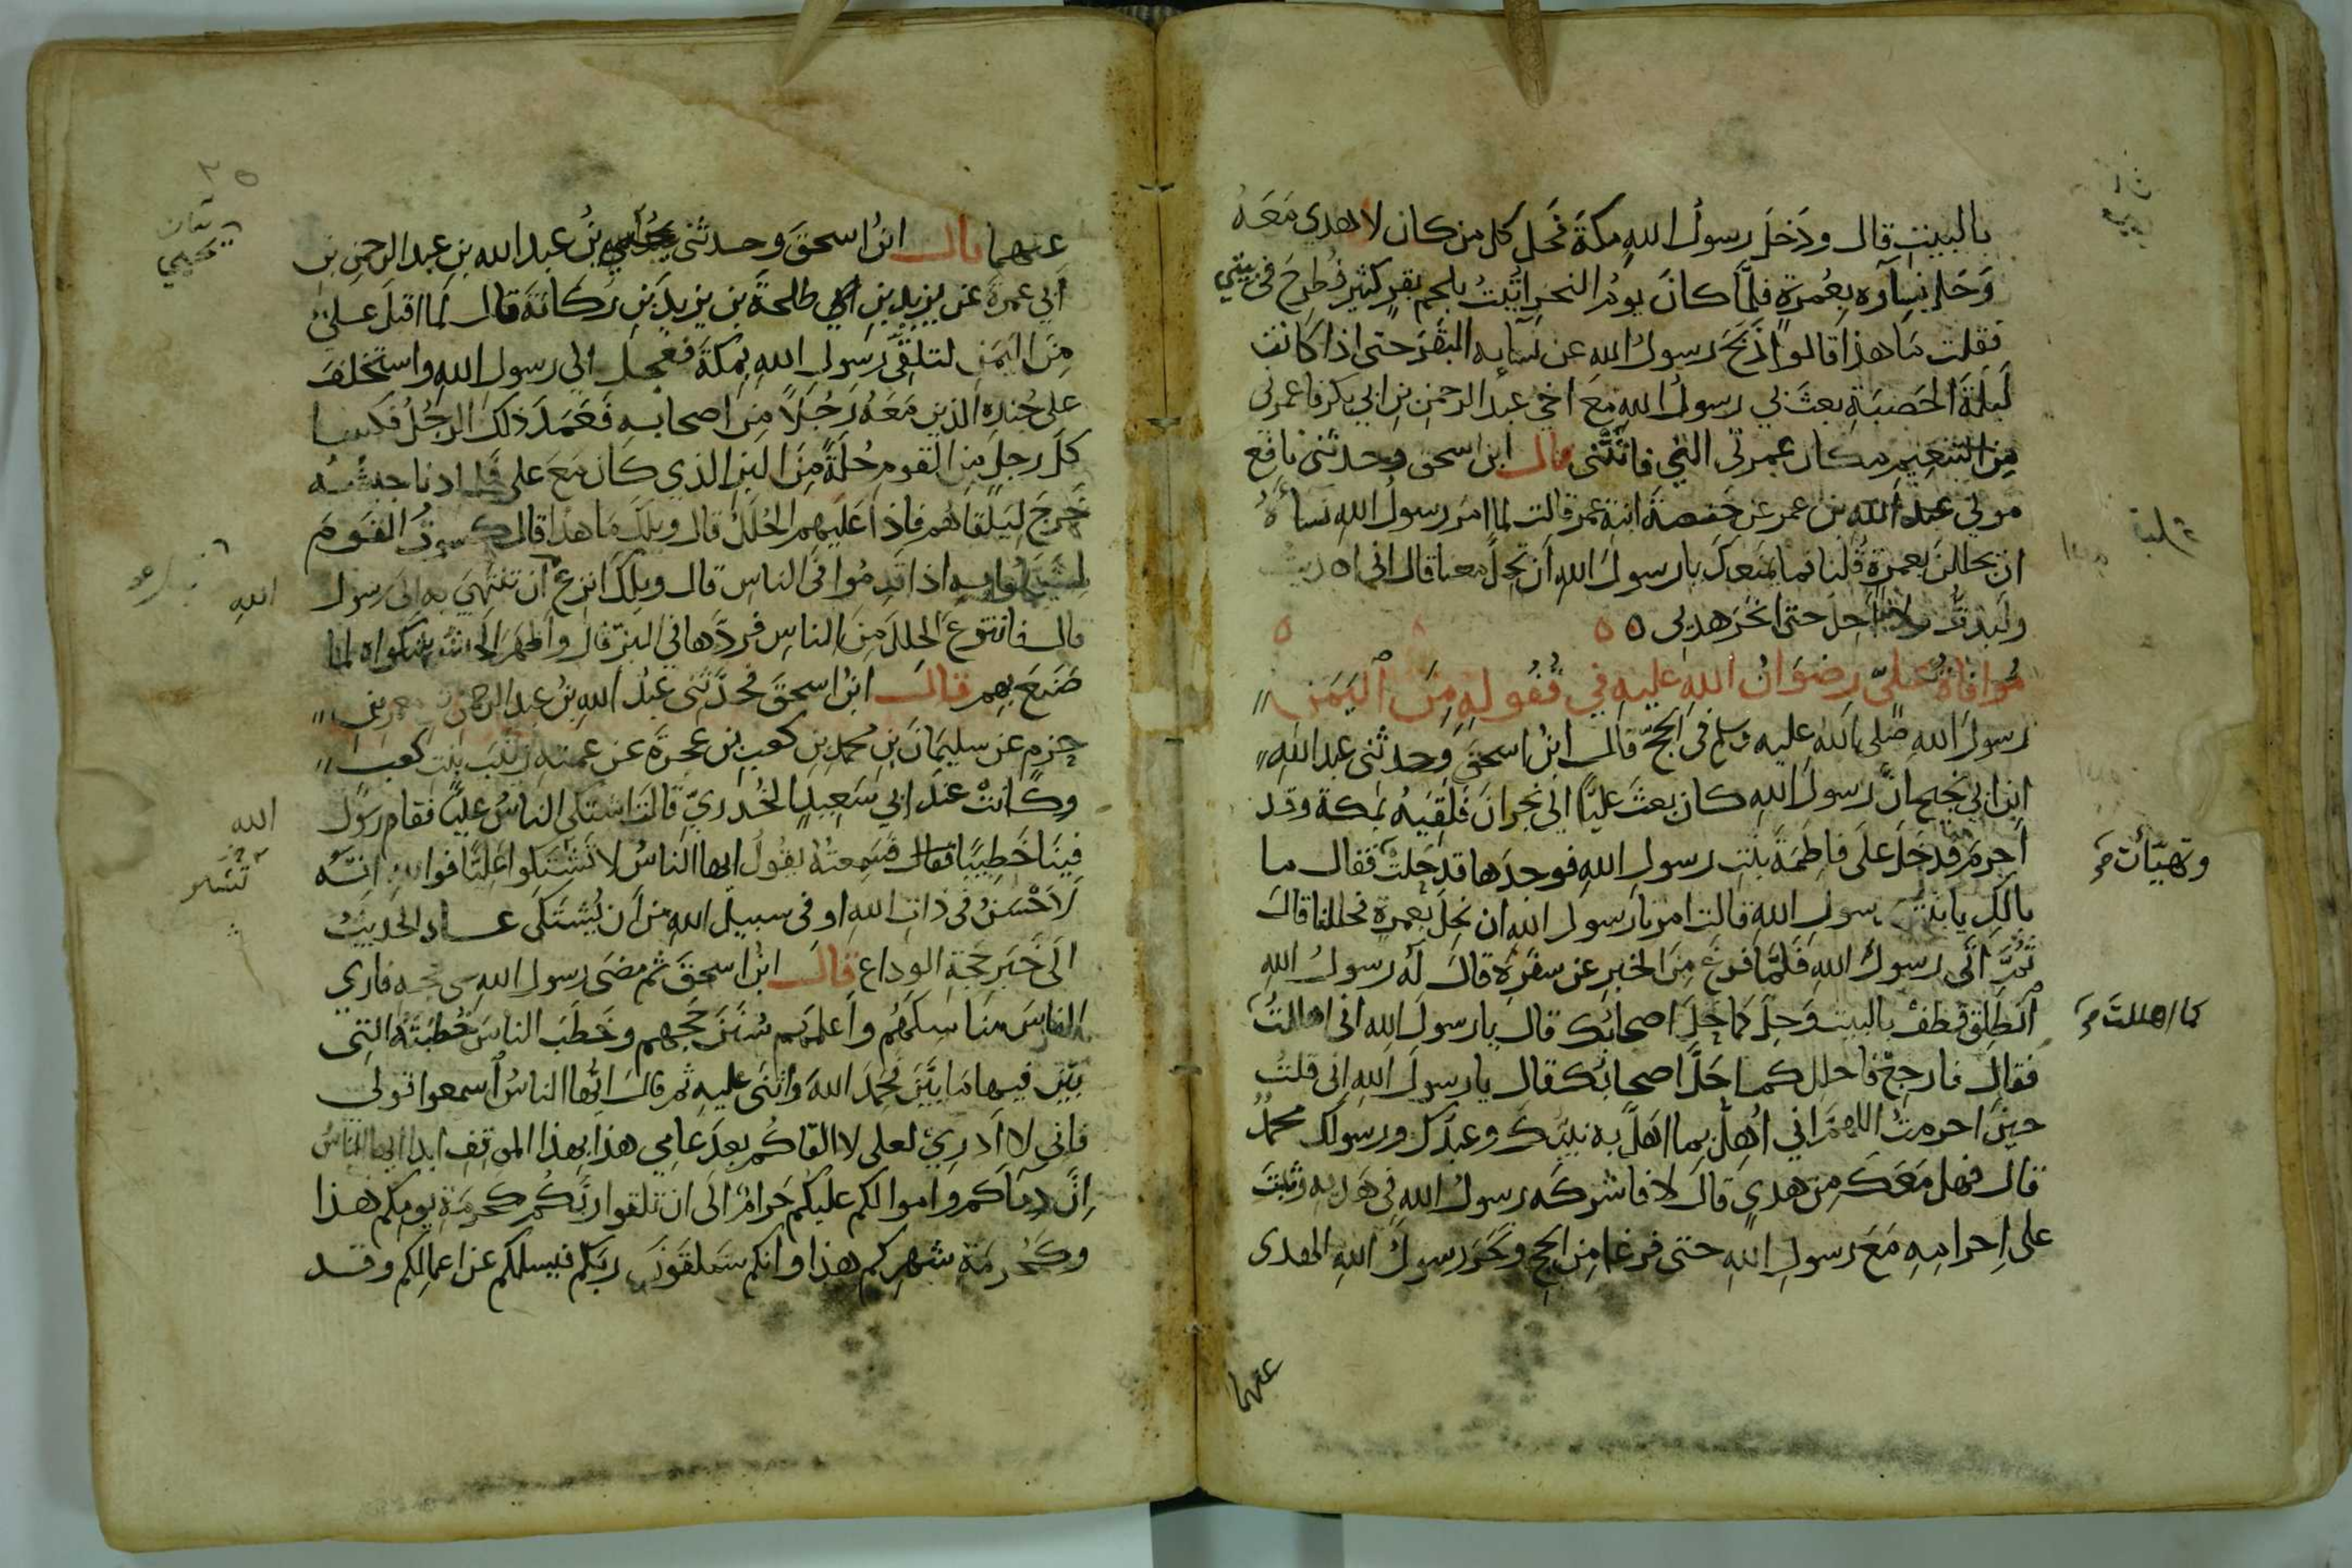 بالبيت قال ودخل رسول الله مكة فحل كل من كان لا هدي معه
وحل نساؤه بعمرة فلما كان يوم النحر اتيت بلحم بقر كثير فطرح في بيتي
فقلت ما هذا قالوا ذبح رسول الله عن نسايه البقر حتى اذا كانت
ليلة الحصبة بعث بي رسول الله مع اخي عبد الرحمن بن ابي بكر فاعمرني
من التنعيم مكان عمرتي التي فاتتني قال ابن اسحق وحدثني نافع
مولى عبد الله بن عمر عن حفصة ابنة عمر قالت لما امر رسول الله نساءه
ان يحللن بعمرة قلنا فما يمنعك يا رسول الله ان تحل معنا قال اني
ولبدت فلا احل حتى انحر هديي ٥
موافاة علي رضوان الله عليه في قفوله من اليمن
رسول الله صلى الله عليه وسلم في الحج قال ابن اسحق وحدثني عبد الله
ابن ابي نجيح ان رسول الله كان بعث عليا الى نجران فلقيه بمكة وقد
احرم فدخل على فاطمة بنت رسول الله فوجدها قد حلت فقال ما
وتهيأت صح
بالك يا بنت رسول الله قالت امرنا رسول الله ان نحل بعمرة فحللنا قال
ثم اتى رسول الله فلما فرغ من الخبر عن سفره قال له رسول الله
انطلق فطف بالبيت وحل كما حل اصحابك قال يا رسول الله اني اهللت
كما اهللت صح
فقال فارجع فاحلل كما حل اصحابك قال يا رسول الله اني قلت
حين احرمت اللهم اني اهل بما اهل به نبيك وعبدك ورسولك محمد
قال فهل معك من هدي قال لا فاشركه رسول الله في هديه وثبت
على احرامه مع رسول الله حتى فرغا من الحج ونحر رسول الله الهدى
عنهما
عنهما قال ابن اسحق وحدثني يحيى بن عبد الله بن عبد الرحمن بن
ابي عمرة عن يزيد بن طلحة بن يزيد بن ركانة قال لما اقبل علي
من اليمن لتلقى رسول الله بمكة فعجل الى رسول الله واستخلف
على جنده الذين معه رجلا من اصحابه فعمد ذلك الرجل فكسا
كل رجل من القوم حلة من البز الذي كان مع علي فلما دنا جيشه
خرج ليلقاهم فاذا عليهم الحلل قال ويلك ما هذا قال كسوت القوم
ليتجملوا به اذا قدموا في الناس قال ويلك انزع ان تنتهي به الى رسول
الله
قال فانتزع الحلل من الناس فردها في البز قال واظهر الجيش شكواه لما
صنع بهم قال ابن اسحق فحدثني عبد الله بن عبد الرحمن بن معمر بن
حزم عن سليمان بن محمد بن كعب بن عجرة عن عمته زينب بنت كعب
وكانت عند ابي سعيد الخدري قالت اشتكى الناس عليا فقام رسول
الله
فينا خطيبا فسمعته يقول ايها الناس لا تشتكوا عليا فوالله انه
لاخشن في ذات الله او في سبيل الله من ان يشتكى عاد الحديث
الى خبر حجة الوداع قال ابن اسحق ثم مضى رسول الله على حجه فارى
الناس مناسكهم واعلمهم سنن حجهم وخطب الناس خطبته التي
بين فيها ما بين فحمد الله واثنى عليه ثم قال ايها الناس اسمعوا قولي
فاني لا ادري لعلي لا القاكم بعد عامي هذا بهذا الموقف ابدا ايها الناس
ان دماكم واموالكم عليكم حرام الى ان تلقوا ربكم كحرمة يومكم هذا
وكحرمة شهركم هذا وانكم ستلقون ربكم فيسلكم عن اعمالكم وقد